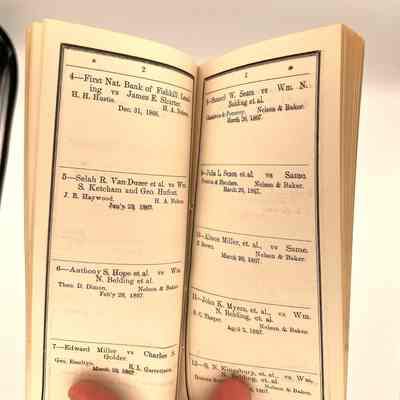 2
4—First Nat. Bank of Fishkill Land-
ing vs James E. Shurter.
H. H. Hustis. H. A. Nelson.
Dec. 31, 1866.
5—Selah R. Van Duzer et al vs Wm.
S. Ketcham and Geo. Hufcut.
J. E. Haywood. H. A. Nelson
Jan'y 23, 1867.
6—Anthony S. Hope et al. vs Wm.
N. Belding et al.
Theo. D. Dimon. Nelson & Baker.
Feb'y 28, 1867.
7—Edward Miller vs Charles S.
Golder.
Geo. R. L. Garrettson.
March 13, 1867.
1
W. Sears vs Wm. N.
Belding et al.
Nelson & Baker.
March 26, 1867.
L. Sears et al vs Same.
Nelson & Baker.
March 26, 1867.
Alison Miller, et al., vs Same.
Nelson & Baker.
March 26, 1867.
11—John K. Myers, et. al., vs Wm.
N. Belding, et. al.
Nelson & Baker.
April 2, 1867.
12—S. N. Kingsbury, et. al. vs Wm.
N. Belding, et al.
Nelson & Baker.